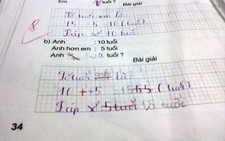 Em : ? tuổi ? Bài giải
8
Số tuổi em là:
15 - 5 = 10 (tuổi)
Đáp số 10 tuổi
b) Anh : 10 tuổi
Anh hơn em : 5 tuổi
Anh : tuổi ? Bài giải
Số tuổi là:
10 + 5 = 15 (tuổi)
Đáp số 15 tuổi
34